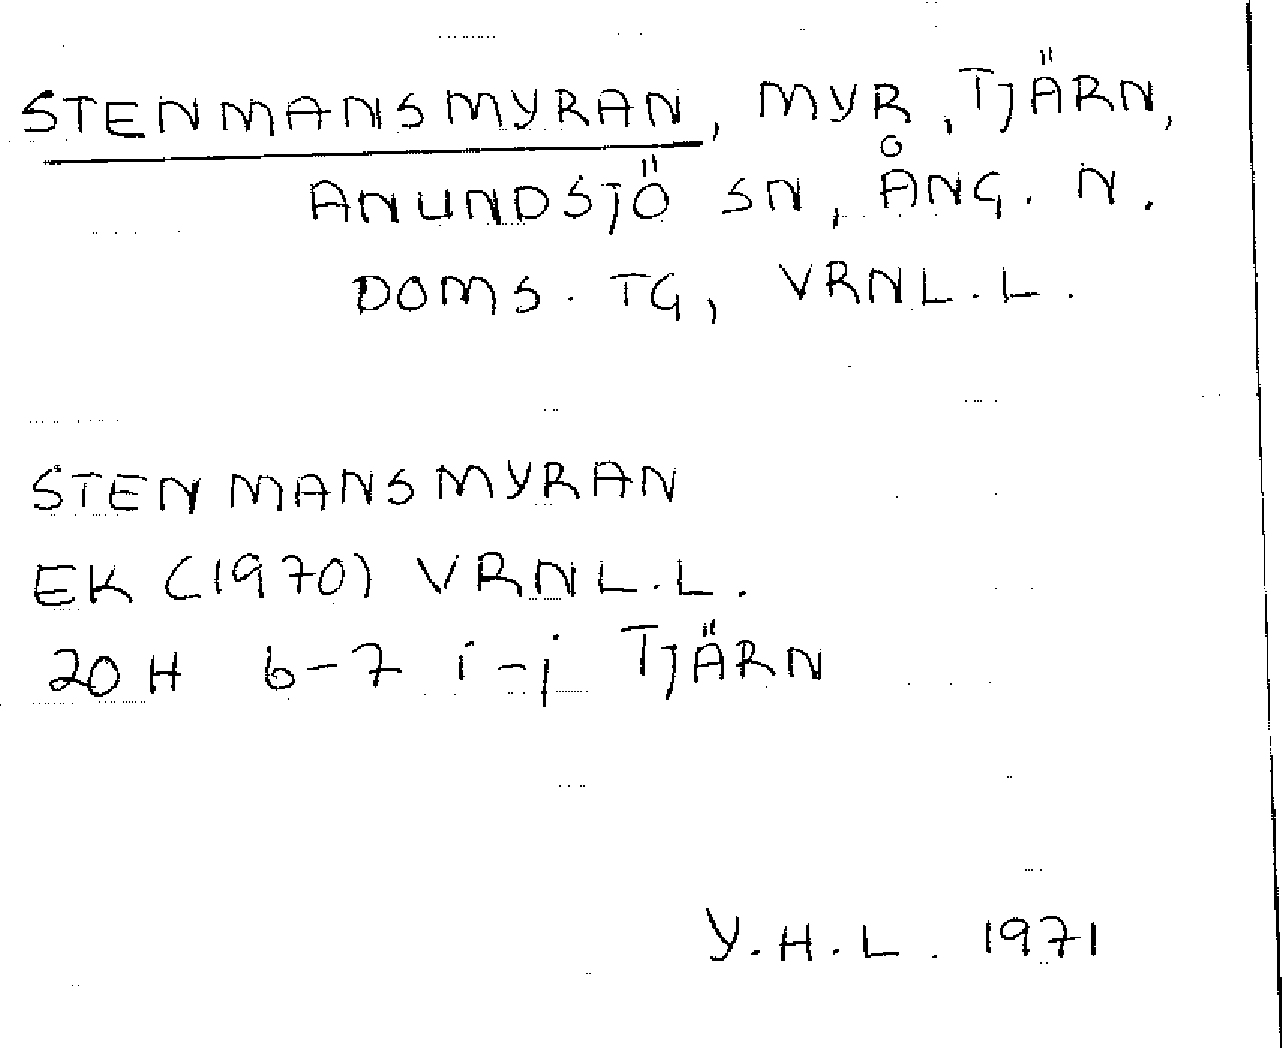 STENMANSMYRAN, MYR, TJÄRN,
ANUNDSJÖ SN, ÅNG. N.
DOMS. TG, VRNL.L.
STENMANSMYRAN
EK (1970) VRNL.L.
20H 6-7 i-j TJÄRN
Y.H.L. 1971